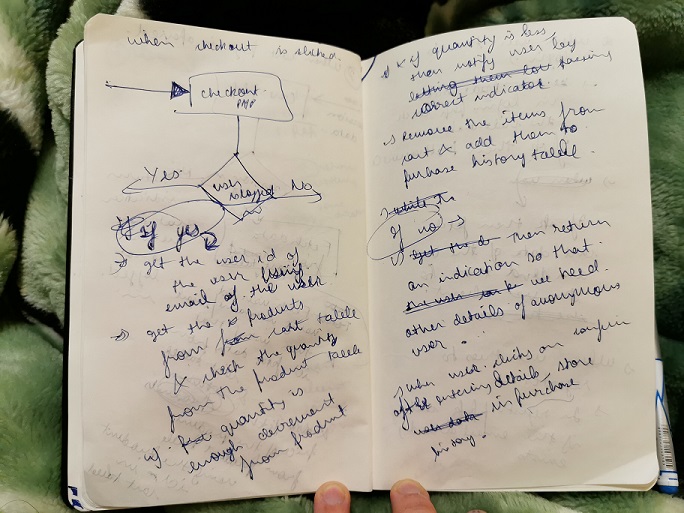 when checkout is clicked.
checkout
PHP
Yes
user
logged
as
No
If yes
get the user id of
the user using
email of the user
get the products
from cart table
& check the quantity
from the product table
if quantity is
enough decrement
from product
& if quantity is less,
than notify user by
letting them low passing
correct indicator.
Remove the items from
cart & add them to
purhase history table.
If no →
get the Then return
an indication so that
we need
other details of anonymous
user...
when user clicks on confirm
after entering details, store
user data in purchase
history.